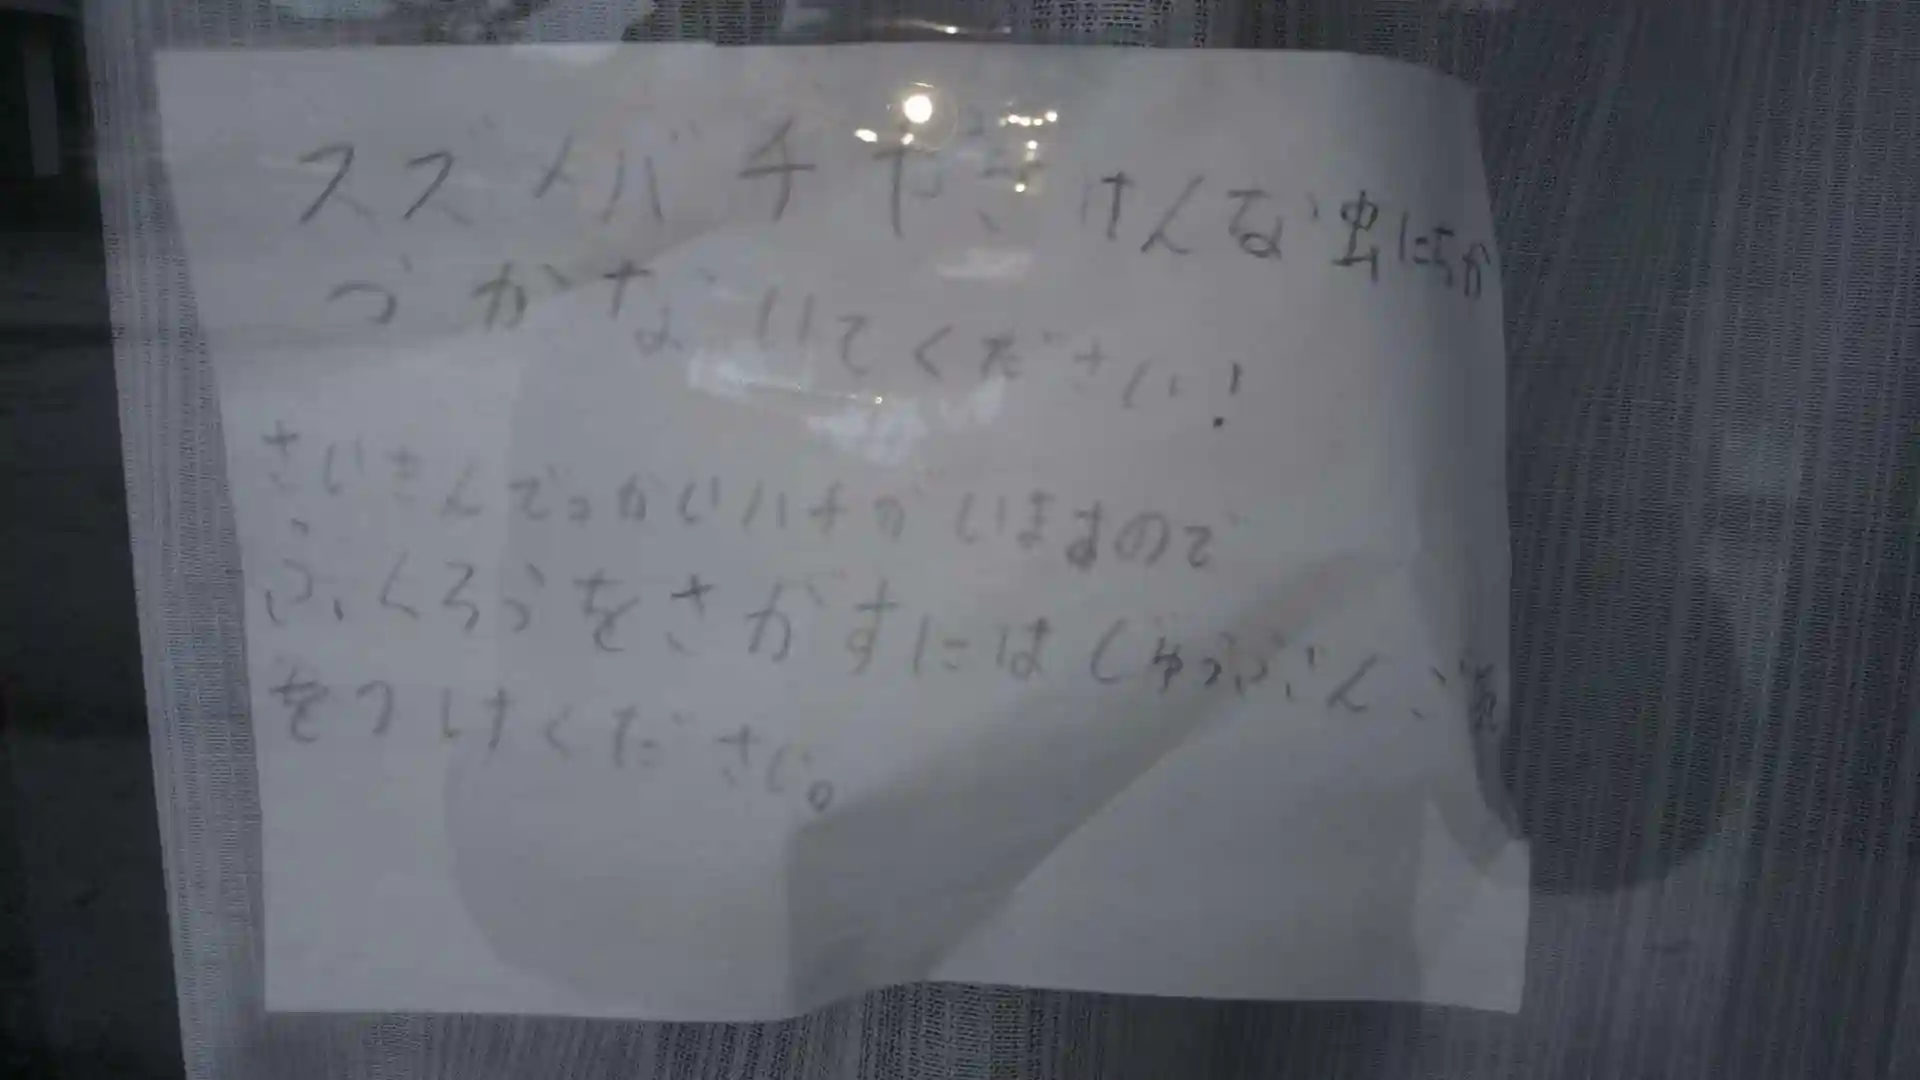 スズメバチやきけんな虫にちか
づかないでください!
さいきんでっかいハチがいますので
ふくろうをさがすにはじゅうぶんご気
をつけください。